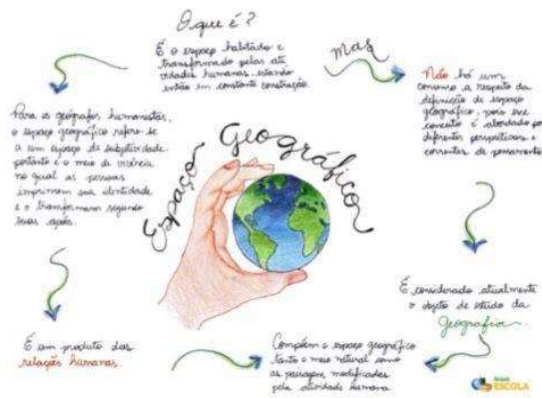 O que é?
É o espaço habitado e
transformado pelas ati
vidades humanas, estando
então em constante construção.
mas
Não há um
consenso a respeito da
definição de espaço
geográfico, pois esse
conceito é abordado por
diferentes perspectivas e
correntes de pensamento
Para os geógrafos humanistas,
o espaço geográfico refere-se
a um espaço de subjetividade
portanto é o meio de vivência
no qual as pessoas
imprimem sua identidade
e o transformam segundo
suas ações.
Espaço Geográfico
É considerado atualmente
o objeto de estudo da
Geografia.
É um produto das
relações humanas.
Compõem o espaço geográfico
tanto o meio natural como
as paisagens modificadas
pela atividade humana
ESCOLA